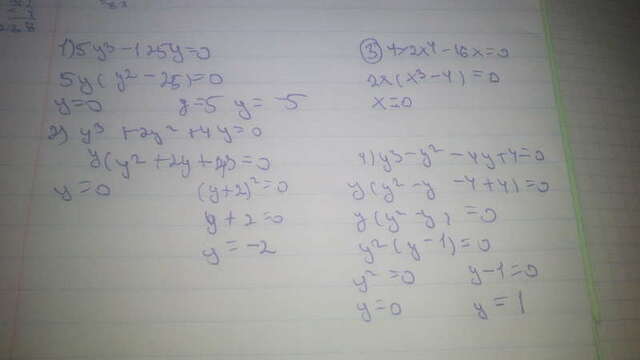 1) 5y³ - 125y = 0
5y (y² - 25) = 0
y = 0 y = 5 y = -5
2) y³ + 2y² + 4y = 0
y (y² + 2y + = 0
y = 0 (y+2)² = 0
y + 2 = 0
y = -2
③ 2x⁴ - 16x = 0
2x (x³ - 4) = 0
x = 0
4) y³ - y² - 4y + 4 = 0
y (y² - y - 4 + 4) = 0
y (y² - y) = 0
y² (y - 1) = 0
y² = 0 y - 1 = 0
y = 0 y = 1